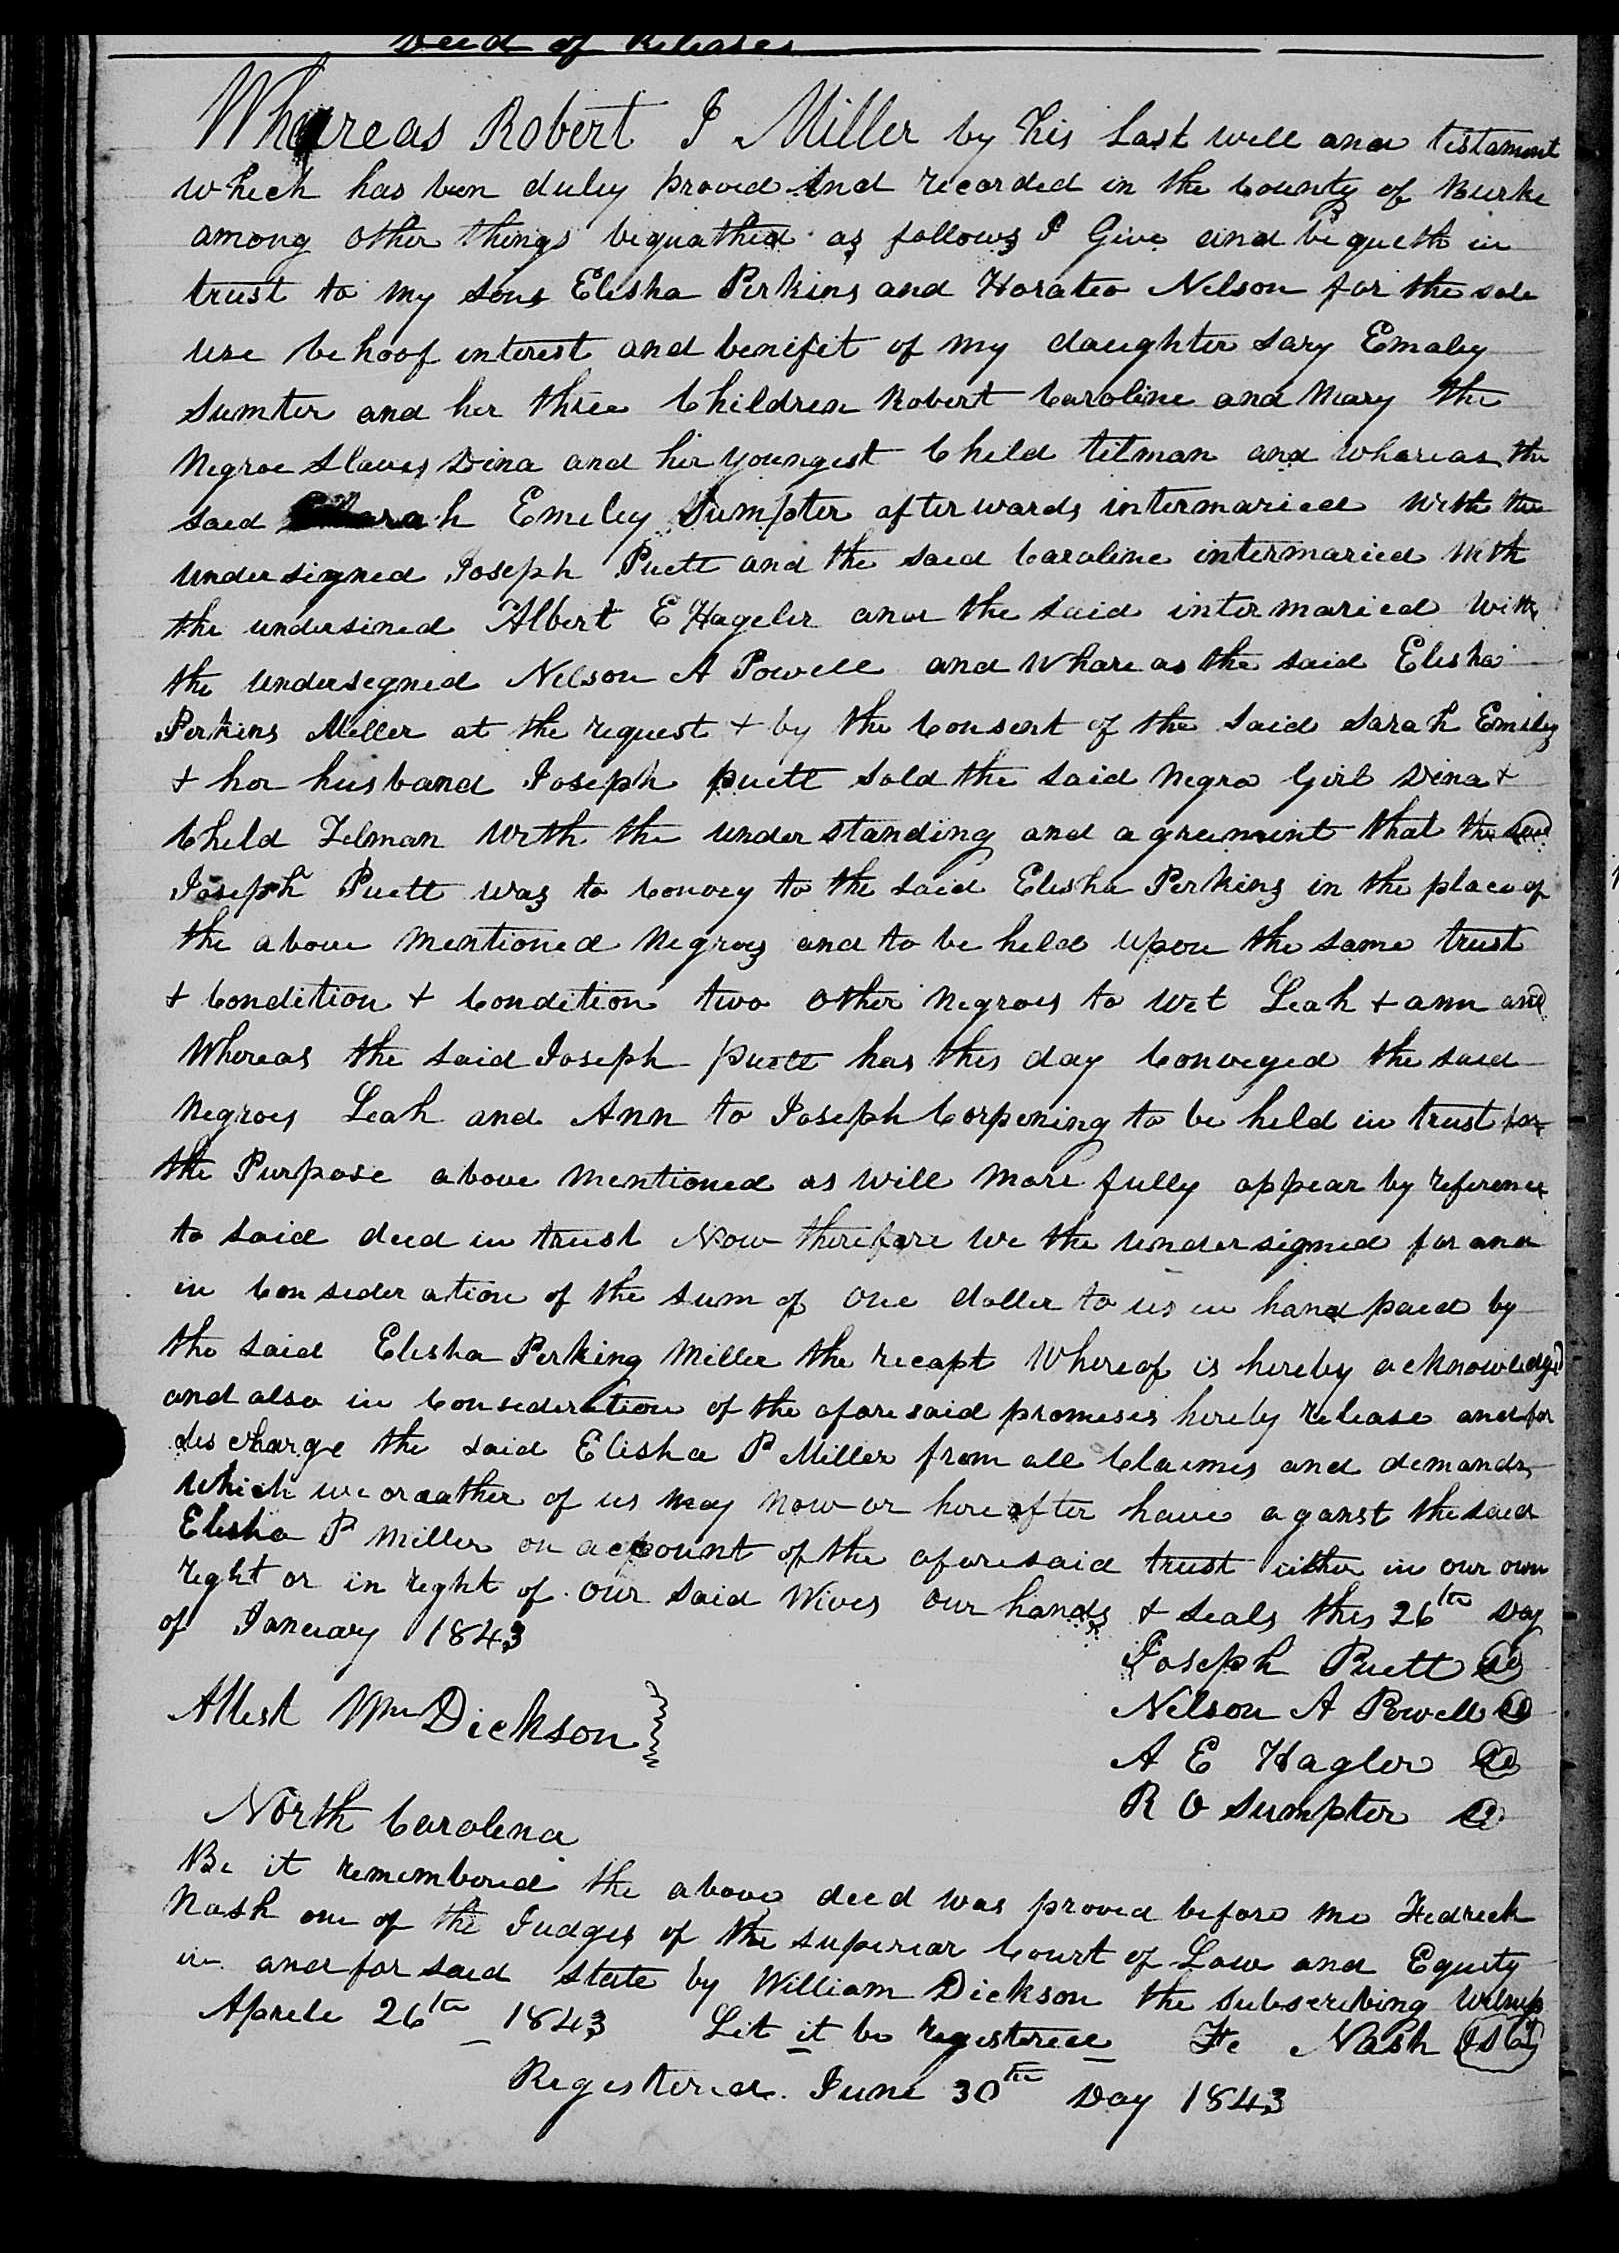 Deed of Releases
Whereas Robert J Miller by his Last will and testament
which has ben duley proved And recorded in the County of Burke
among other things bequathed as follows I Give and bequeth in
trust to my Sons Elisha Perkins and Horateo Nelson for the sole
use behoof interest and benifit of my daughter Sary Emaley
Sumter and her three Children Robert Caroline and Mary the
Negroe Slaves Dina and her youngest Child titman and whareas the
said Sarah Emeley Sumpter afterwards intermaried With the
undersigned Joseph Puett and the said Caroline intermaried With
the undersined Albert E Hageler and the said intermaried With
the undersegned Nelson A Powell and Whareas the said Elisha
Perkins Meller at the request + by the Consent of the said Sarah Emiley
+ hor husband Joseph puett sold the said Negro Girl Dina +
Cheld Telman With the understanding and agreement that the said
Joseph Puett was to Convey to the said Elisha Perkins in the place of
the above mentioned Negroes and to be held upon the same trust
+ Condition + Condition two other Negroes to wit Leah + ann and
Whereas the said Joseph puett has this day Conveyed the said
Negroes Leah and Ann to Joseph Corpening to be held in trust for
the Purpose above mentioned as will more fully appear by reference
to said deed in trust Now therefore we the undersigned for and
in Consederation of the sum of one doller to us in hand paid by
the said Elisha Perking Miller the recapt Whereof is hereby acknowledged
and also in Consederation of the aforesaid promeses hereby release and for
descharge the said Elisha P Miller from all Claimes and demands
which we or aather of us may now or hereafter have aganst the said
Elisha P Miller on account of the aforesaid trust either in our own
reght or in reght of our said Wives our hands + seals this 26th Day
of January 1843
Joseph Puett
Nelson A Powell
Attest Wm Dickson
A E Hagler
R O Sumpter
North Carolena
Be it remembered the above deed was proved before me Fedreck
Nash one of the Judges of the superior Court of Law and Equity
in and for said state by William Dickson the subscribing Witness
Aprele 26th 1843 Let it be regestered Fr Nash
Regestered June 30th Day 1843